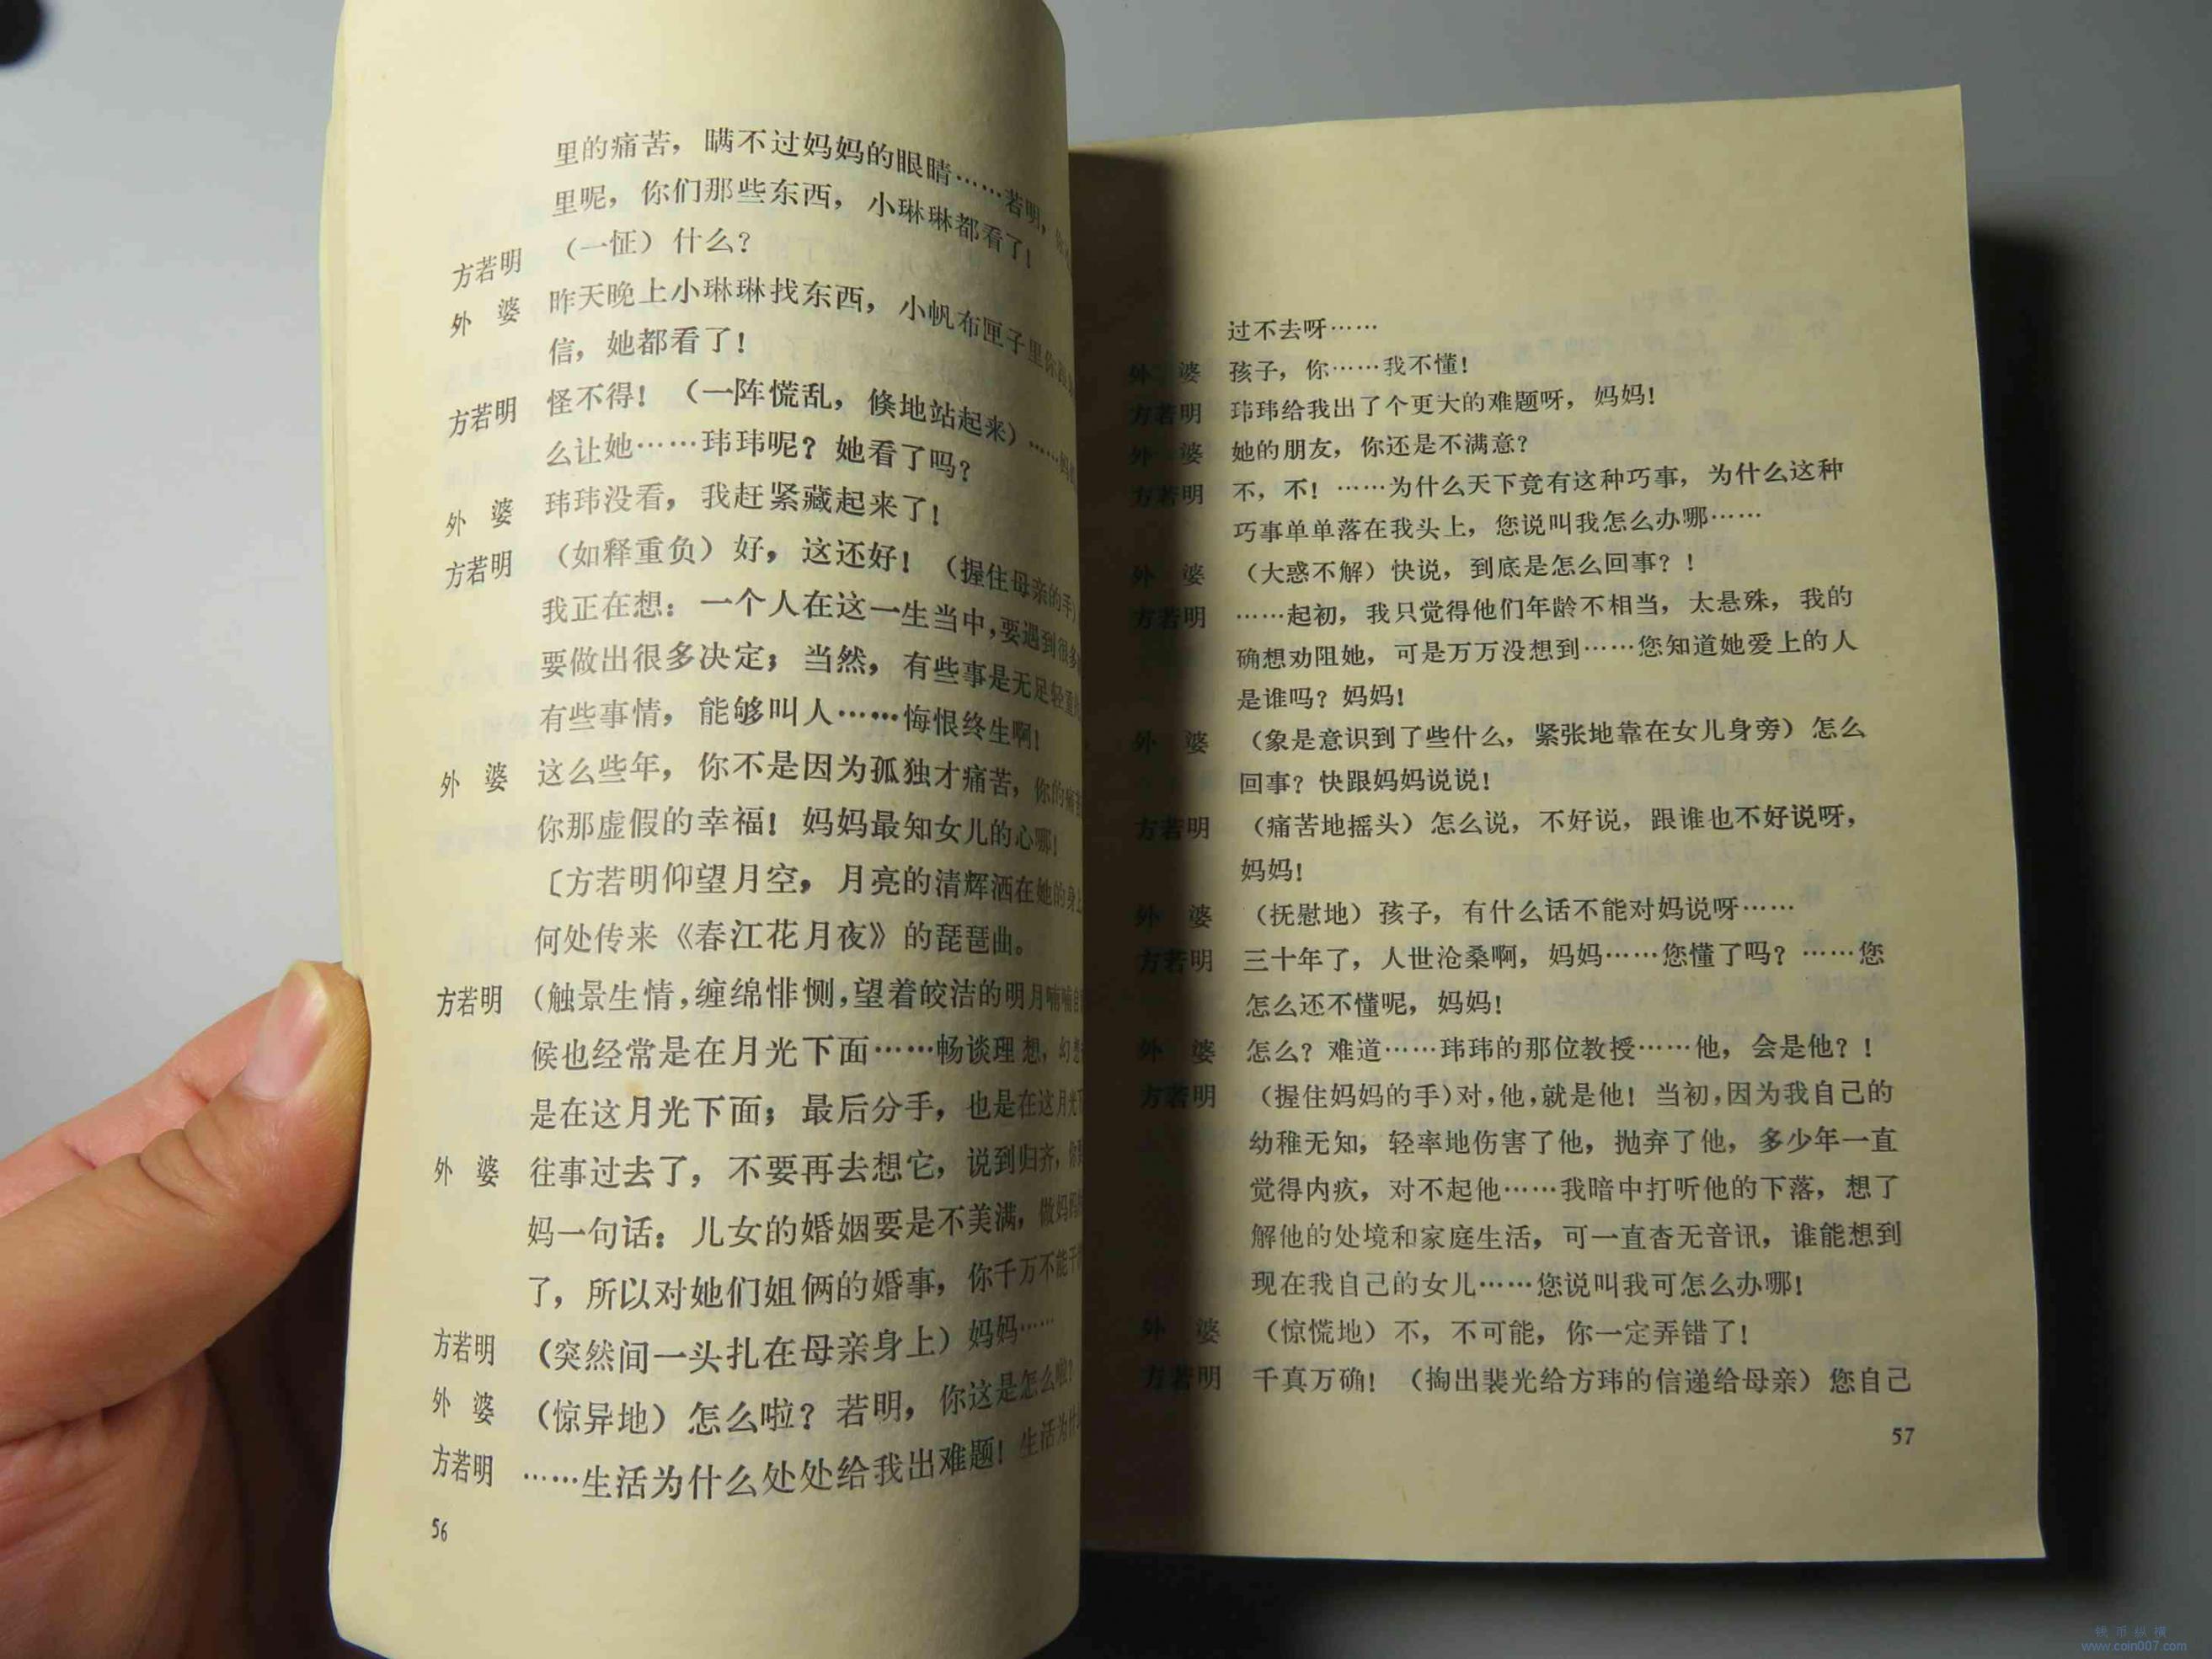 里的痛苦，瞒不过妈妈的眼睛……若明，
里呢，你们那些东西，小琳琳都看了！
方若明 （一怔）什么？
外 婆 昨天晚上小琳琳找东西，小帆布匣子里你
信，她都看了！
方若明 怪不得！（一阵慌乱，倏地站起来）……
么让她……玮玮呢？她看了吗？
外 婆 玮玮没看，我赶紧藏起来了！
方若明 （如释重负）好，这还好！（握住母亲的手）
我正在想：一个人在这一生当中，要遇到很多
要做出很多决定；当然，有些事是无足轻重
有些事情，能够叫人……悔恨终生啊！
外 婆 这么些年，你不是因为孤独才痛苦，你的痛苦
你那虚假的幸福！妈妈最知女儿的心哪！
〔方若明仰望月空，月亮的清辉洒在她的身上
何处传来《春江花月夜》的琵琶曲。
方若明 （触景生情，缠绵悱恻，望着皎洁的明月喃喃
候也经常是在月光下面……畅谈理想，幻想
是在这月光下面；最后分手，也是在这月光下
外 婆 往事过去了，不要再去想它，说到归齐，你
妈一句话：儿女的婚姻要是不美满，做妈妈
了，所以对她们姐俩的婚事，你千万不能干
方若明 （突然间一头扎在母亲身上）妈妈……
外 婆 （惊异地）怎么啦？若明，你这是怎么啦！
方若明 ……生活为什么处处给我出难题！生活为什
56
过不去呀……
外 婆 孩子，你……我不懂！
方若明 玮玮给我出了个更大的难题呀，妈妈！
外 婆 她的朋友，你还是不满意？
方若明 不，不！……为什么天下竟有这种巧事，为什么这种
巧事单单落在我头上，您说叫我怎么办哪……
外 婆 （大惑不解）快说，到底是怎么回事？！
方若明 ……起初，我只觉得他们年龄不相当，太悬殊，我的
确想劝阻她，可是万万没想到……您知道她爱上的人
是谁吗？妈妈！
外 婆 （象是意识到了些什么，紧张地靠在女儿身旁）怎么
回事？快跟妈妈说说！
方若明 （痛苦地摇头）怎么说，不好说，跟谁也不好说呀，
妈妈！
外 婆 （抚慰地）孩子，有什么话不能对妈说呀……
方若明 三十年了，人世沧桑啊，妈妈……您懂了吗？……您
怎么还不懂呢，妈妈！
外 婆 怎么？难道……玮玮的那位教授……他，会是他？！
方若明 （握住妈妈的手）对，他，就是他！当初，因为我自己的
幼稚无知，轻率地伤害了他，抛弃了他，多少年一直
觉得内疚，对不起他……我暗中打听他的下落，想了
解他的处境和家庭生活，可一直杳无音讯，谁能想到
现在我自己的女儿……您说叫我可怎么办哪！
外 婆 （惊慌地）不，不可能，你一定弄错了！
方若明 千真万确！（掏出裴光给方玮的信递给母亲）您自己
57
钱币纵横
www.coin007.com